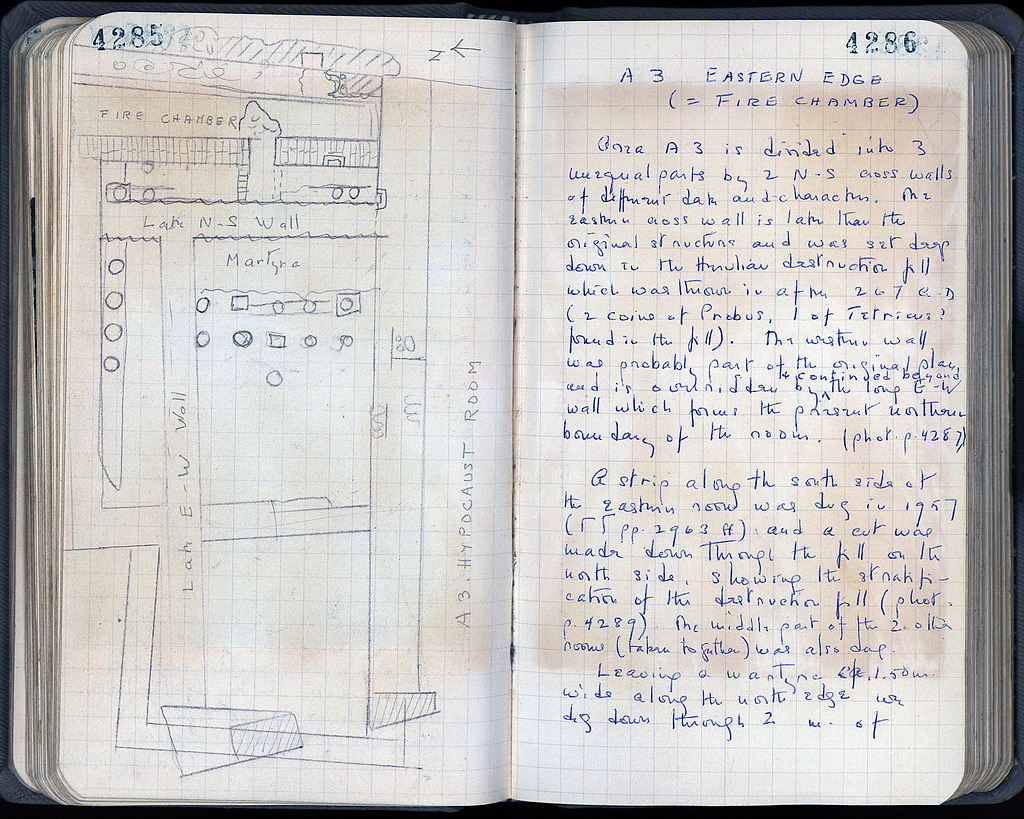 4285
N
FIRE CHAMBER
Late N-S Wall
Martyra
Late E-W Wall
A3: HYPOCAUST ROOM
4286
A 3 EASTERN EDGE
(= FIRE CHAMBER)
Area A 3 is divided into 3
unequal parts by 2 N-S cross walls
of different date and character. The
eastern cross wall is later than the
original structure and was set deep
down in the Herulian destruction fill
which was thrown in after 267 A.D
(2 coins of Probus, 1 of Tetricus?
found in the fill). The western wall
was probably part of the original plan,
& continued beyond
and is overridden by the long E-W
wall which forms the present northern
boundary of the room. (phot. p. 4287)
A strip along the south side of
the eastern room was dug in 1957
(ΓΓ pp. 2963 ff) and a cut was
made down through the fill on the
north side, showing the stratifi-
cation of the destruction fill (phot.
p. 4289). The middle part of the 2 other
rooms (taken together) was also dug.
Leaving a martyra 1.50 m.
wide along the north edge we
dug down through 2 m. of